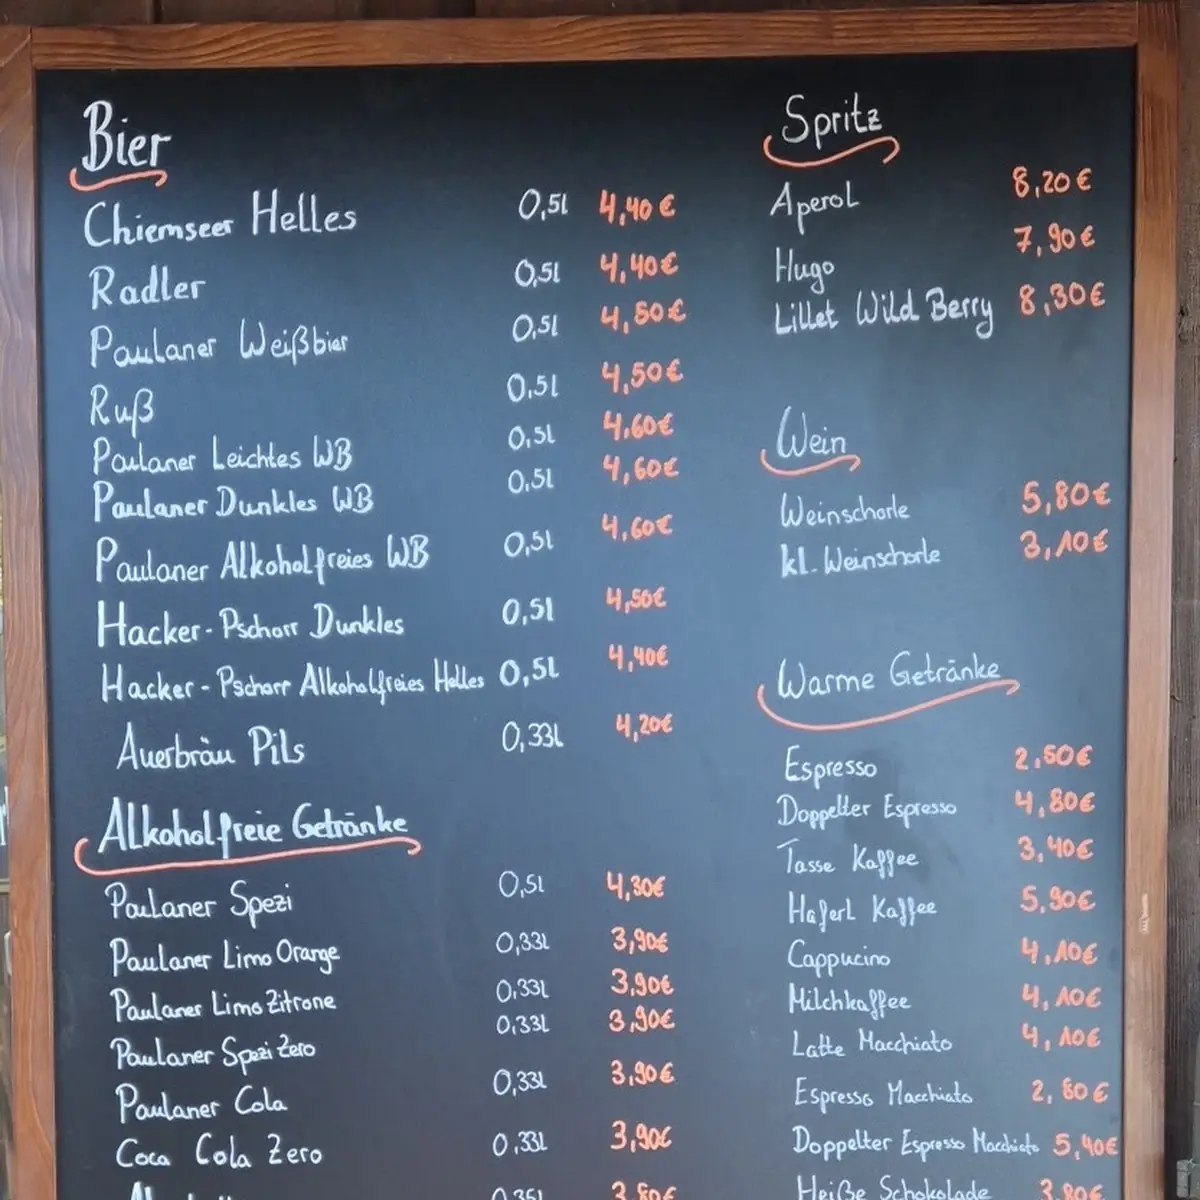 Bier
Chiemseer Helles 0,5l 4,40€
Radler 0,5l 4,40€
Paulaner Weißbier 0,5l 4,50€
Ruß 0,5l 4,50€
Paulaner Leichtes WB 0,5l 4,60€
Paulaner Dunkles WB 0,5l 4,60€
Paulaner Alkoholfreies WB 0,5l 4,60€
Hacker-Pschorr Dunkles 0,5l 4,50€
Hacker-Pschorr Alkoholfreies Helles 0,5l 4,40€
Auerbräu Pils 0,33l 4,20€
Alkoholfreie Getränke
Paulaner Spezi 0,5l 4,30€
Paulaner Limo Orange 0,33l 3,90€
Paulaner Limo Zitrone 0,33l 3,90€
Paulaner Spezi Zero 0,33l 3,90€
Paulaner Cola 0,33l 3,90€
Coca Cola Zero 0,33l 3,90€
Spritz
Aperol 8,20€
Hugo 7,90€
Lillet Wild Berry 8,30€
Wein
Weinschorle 5,80€
kl. Weinschorle 3,10€
Warme Getränke
Espresso 2,50€
Doppelter Espresso 4,80€
Tasse Kaffee 3,40€
Haferl Kaffee 5,90€
Cappucino 4,10€
Milchkaffee 4,10€
Latte Macchiato 4,10€
Espresso Macchiato 2,80€
Doppelter Espresso Macchiato 5,40€
Heiße Schokolade 3,80€